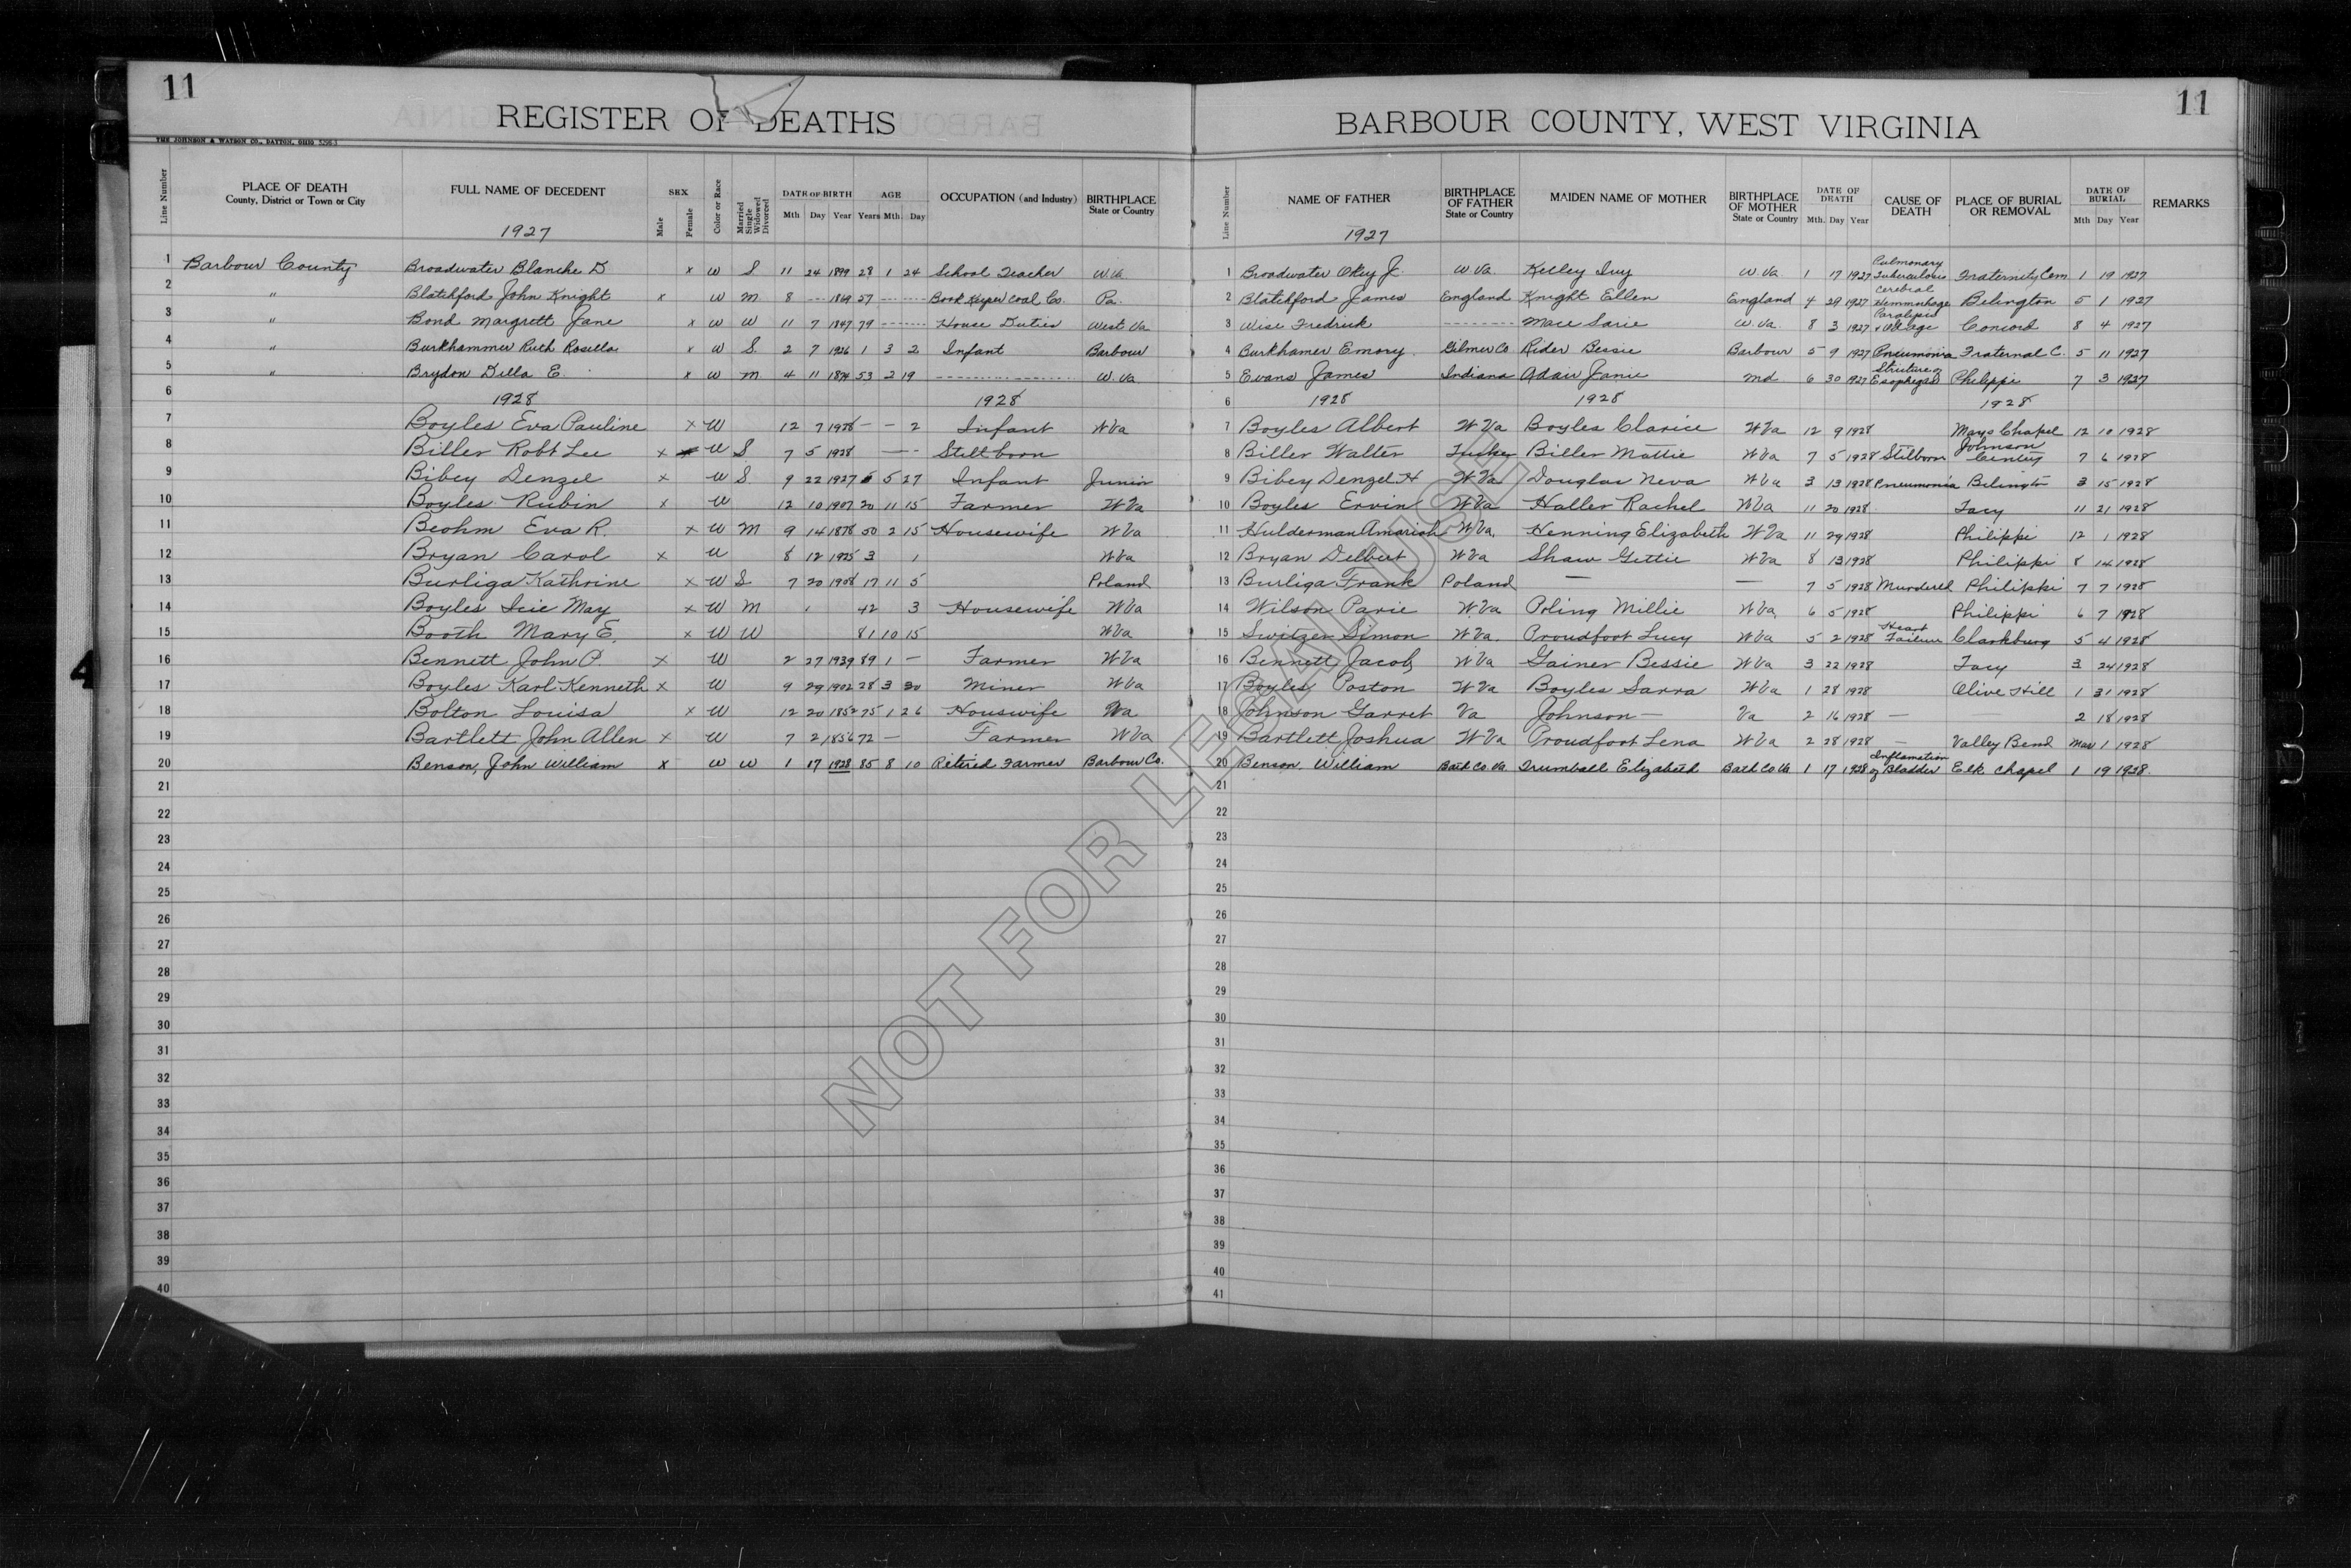 11
REGISTER OF DEATHS
THE JOHNSON & WATSON CO., DAYTON, OHIO
Line Number PLACE OF DEATH County, District or Town or City FULL NAME OF DECEDENT SEX Male Female Color or Race Married Single Widowed Divorced DATE OF BIRTH Mth Day Year AGE Years Mth. Day OCCUPATION (and Industry) BIRTHPLACE State or Country
1927
1 Barbour County Broadwater Blanche D x W S 11 24 1899 28 1 24 School Teacher W.Va.
2 " Blatchford John Knight x W M 8 --- 1869 57 --- Book Keeper Coal Co. Pa.
3 " Bond Margrett Jane x W W 11 7 1847 79 --- House Duties West Va
4 " Burkhammer Ruth Rosella x W S. 2 7 1926 1 3 2 Infant Barbour
5 " Brydon Della E. x W M 4 11 1874 53 2 19 --- W.Va
6 1928 1928
7 Boyles Eva Pauline x W 12 7 1928 — — 2 Infant W Va
8 Biller Robt Lee x W S 7 5 1928 — Stillborn
9 Bibey Denzel x W S 9 22 1927 5 27 Infant Junior
10 Boyles Rubin x W 12 10 1907 20 11 15 Farmer W Va
11 Beohm Eva R. x W M 9 14 1878 50 2 15 Housewife W Va
12 Bryan Carol x W 8 12 1925 3 1 W Va
13 Burliga Kathrine x W S 7 20 1908 17 11 5 Poland
14 Boyles Icie May x W M 42 3 Housewife W Va
15 Booth Mary E. x W W 81 10 15 W Va
16 Bennett John P. x W 2 27 1939 89 1 — Farmer W Va
17 Boyles Karl Kenneth x W 9 29 1902 28 3 30 Miner W Va
18 Bolton Louisa x W 12 20 1852 75 1 26 Houswife Va
19 Bartlett John Allen x W 7 2 1856 72 — Farmer W Va
20 Benson, John William x W W 1 17 1928 85 8 10 Retired Farmer Barbour Co.
21
22
23
24
25
26
27
28
29
30
31
32
33
34
35
36
37
38
39
40
11
BARBOUR COUNTY, WEST VIRGINIA
Line Number NAME OF FATHER BIRTHPLACE OF FATHER State or Country MAIDEN NAME OF MOTHER BIRTHPLACE OF MOTHER State or Country DATE OF DEATH Mth. Day Year CAUSE OF DEATH PLACE OF BURIAL OR REMOVAL DATE OF BURIAL Mth Day Year REMARKS
1927
1 Broadwater Okey J. W.Va. Kelley Ivy W.Va. 1 17 1927 Pulmonary Tuberculosis Fraternity Cem 1 19 1927
2 Blatchford James England Knight Ellen England 4 29 1927 Cerebral Hemmorhage Belington 5 1 1927
3 Wise Fredrick --- Mace Sarie W.Va. 8 3 1927 Paralysis & Old age Concord 8 4 1927
4 Burkhamer Emory Gilmer Co Rider Bessie Barbour 5 9 1927 Pneumonia Fraternal C. 5 11 1927
5 Evans James Indiana Adair Janie Md 6 30 1927 Stricture of Esophegas Philippi 7 3 1927
6 1928 1928 1928
7 Boyles Albert W Va Boyles Clarice W Va 12 9 1928 Mays Chapel 12 10 1928
8 Biller Walter Tucker Biller Mattie W Va 7 5 1928 Stilborn Johnson 7 6 1928
9 Bibey Denzel H W Va Douglas Neva W Va 3 13 1928 Pneumonia Belington 3 15 1928
10 Boyles Ervin W Va Haller Rachel W Va 11 20 1928 Tacy 11 21 1928
11 Hulderman Amariah W Va. Henning Elizabeth W Va 11 29 1928 Philippi 12 1 1928
12 Bryan Delbert W Va Shaw Gettie W Va 8 13 1928 Philippi 8 14 1928
13 Burliga Frank Poland — — 7 5 1928 Murdered Philippi 7 7 1928
14 Wilson Parie W.Va Poling Millie W.Va. 6 5 1928 Philippi 6 7 1928
15 Switzer Simon W Va. Proudfoot Lucy W Va 5 2 1928 Heart Failure Clarksburg 5 4 1928
16 Bennett Jacob W Va Gainer Bessie W Va 3 22 1928 Tacy 3 24 1928
17 Boyles Poston W Va Boyles Sarra W Va 1 28 1928 Olive Hill 1 31 1928
18 Johnson Garret Va Johnson — Va 2 16 1928 — 2 18 1928
19 Bartlett Joshua W Va Proudfoot Lena W Va 2 28 1928 — Valley Bend Mar 1 1928
20 Benson William Bath Co Va. Trumball Elizabeth Bath Co Va 1 17 1928 Inflamation of Bladder Elk Chapel 1 19 1928.
21
22
23
24
25
26
27
28
29
30
31
32
33
34
35
36
37
38
39
40
41
NOT FOR LEGAL USE